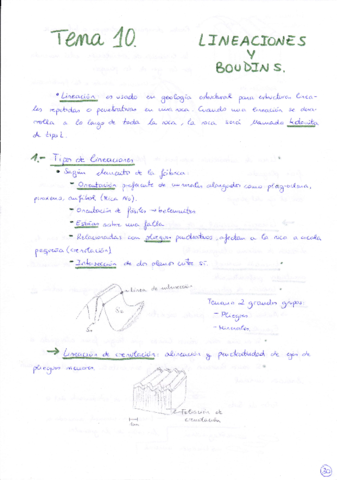 Tema 10.
LINEACIONES
Y
BOUDINS.
* Lineación: es usado en geología estructural para estructura linea-
les repetidas o penetrativas en una roca. Cuando una lineación se desa-
rrolla a lo largo de toda la roca, la roca será llamada
de tipo L.
1.- Tipos de lineaciones
- Según elemento de la fábrica.
- Orientación preferente de minerales alargados como plagioclasa,
piroxeno, anfíbol
- Orientación de fósiles
- Estrías sobre una falla.
- Relacionadas con pliegues penetrativos, afectan a la roca a escala
pequeña (crenulación)
- Intersección de dos planos entre sí.
Tenemos 2 grandes grupos:
- Pliegues
- Minerales
→ Lineación de crenulación: alineación y penetratividad de ejes de
pliegues menores.
Lineación de
crenulación
30